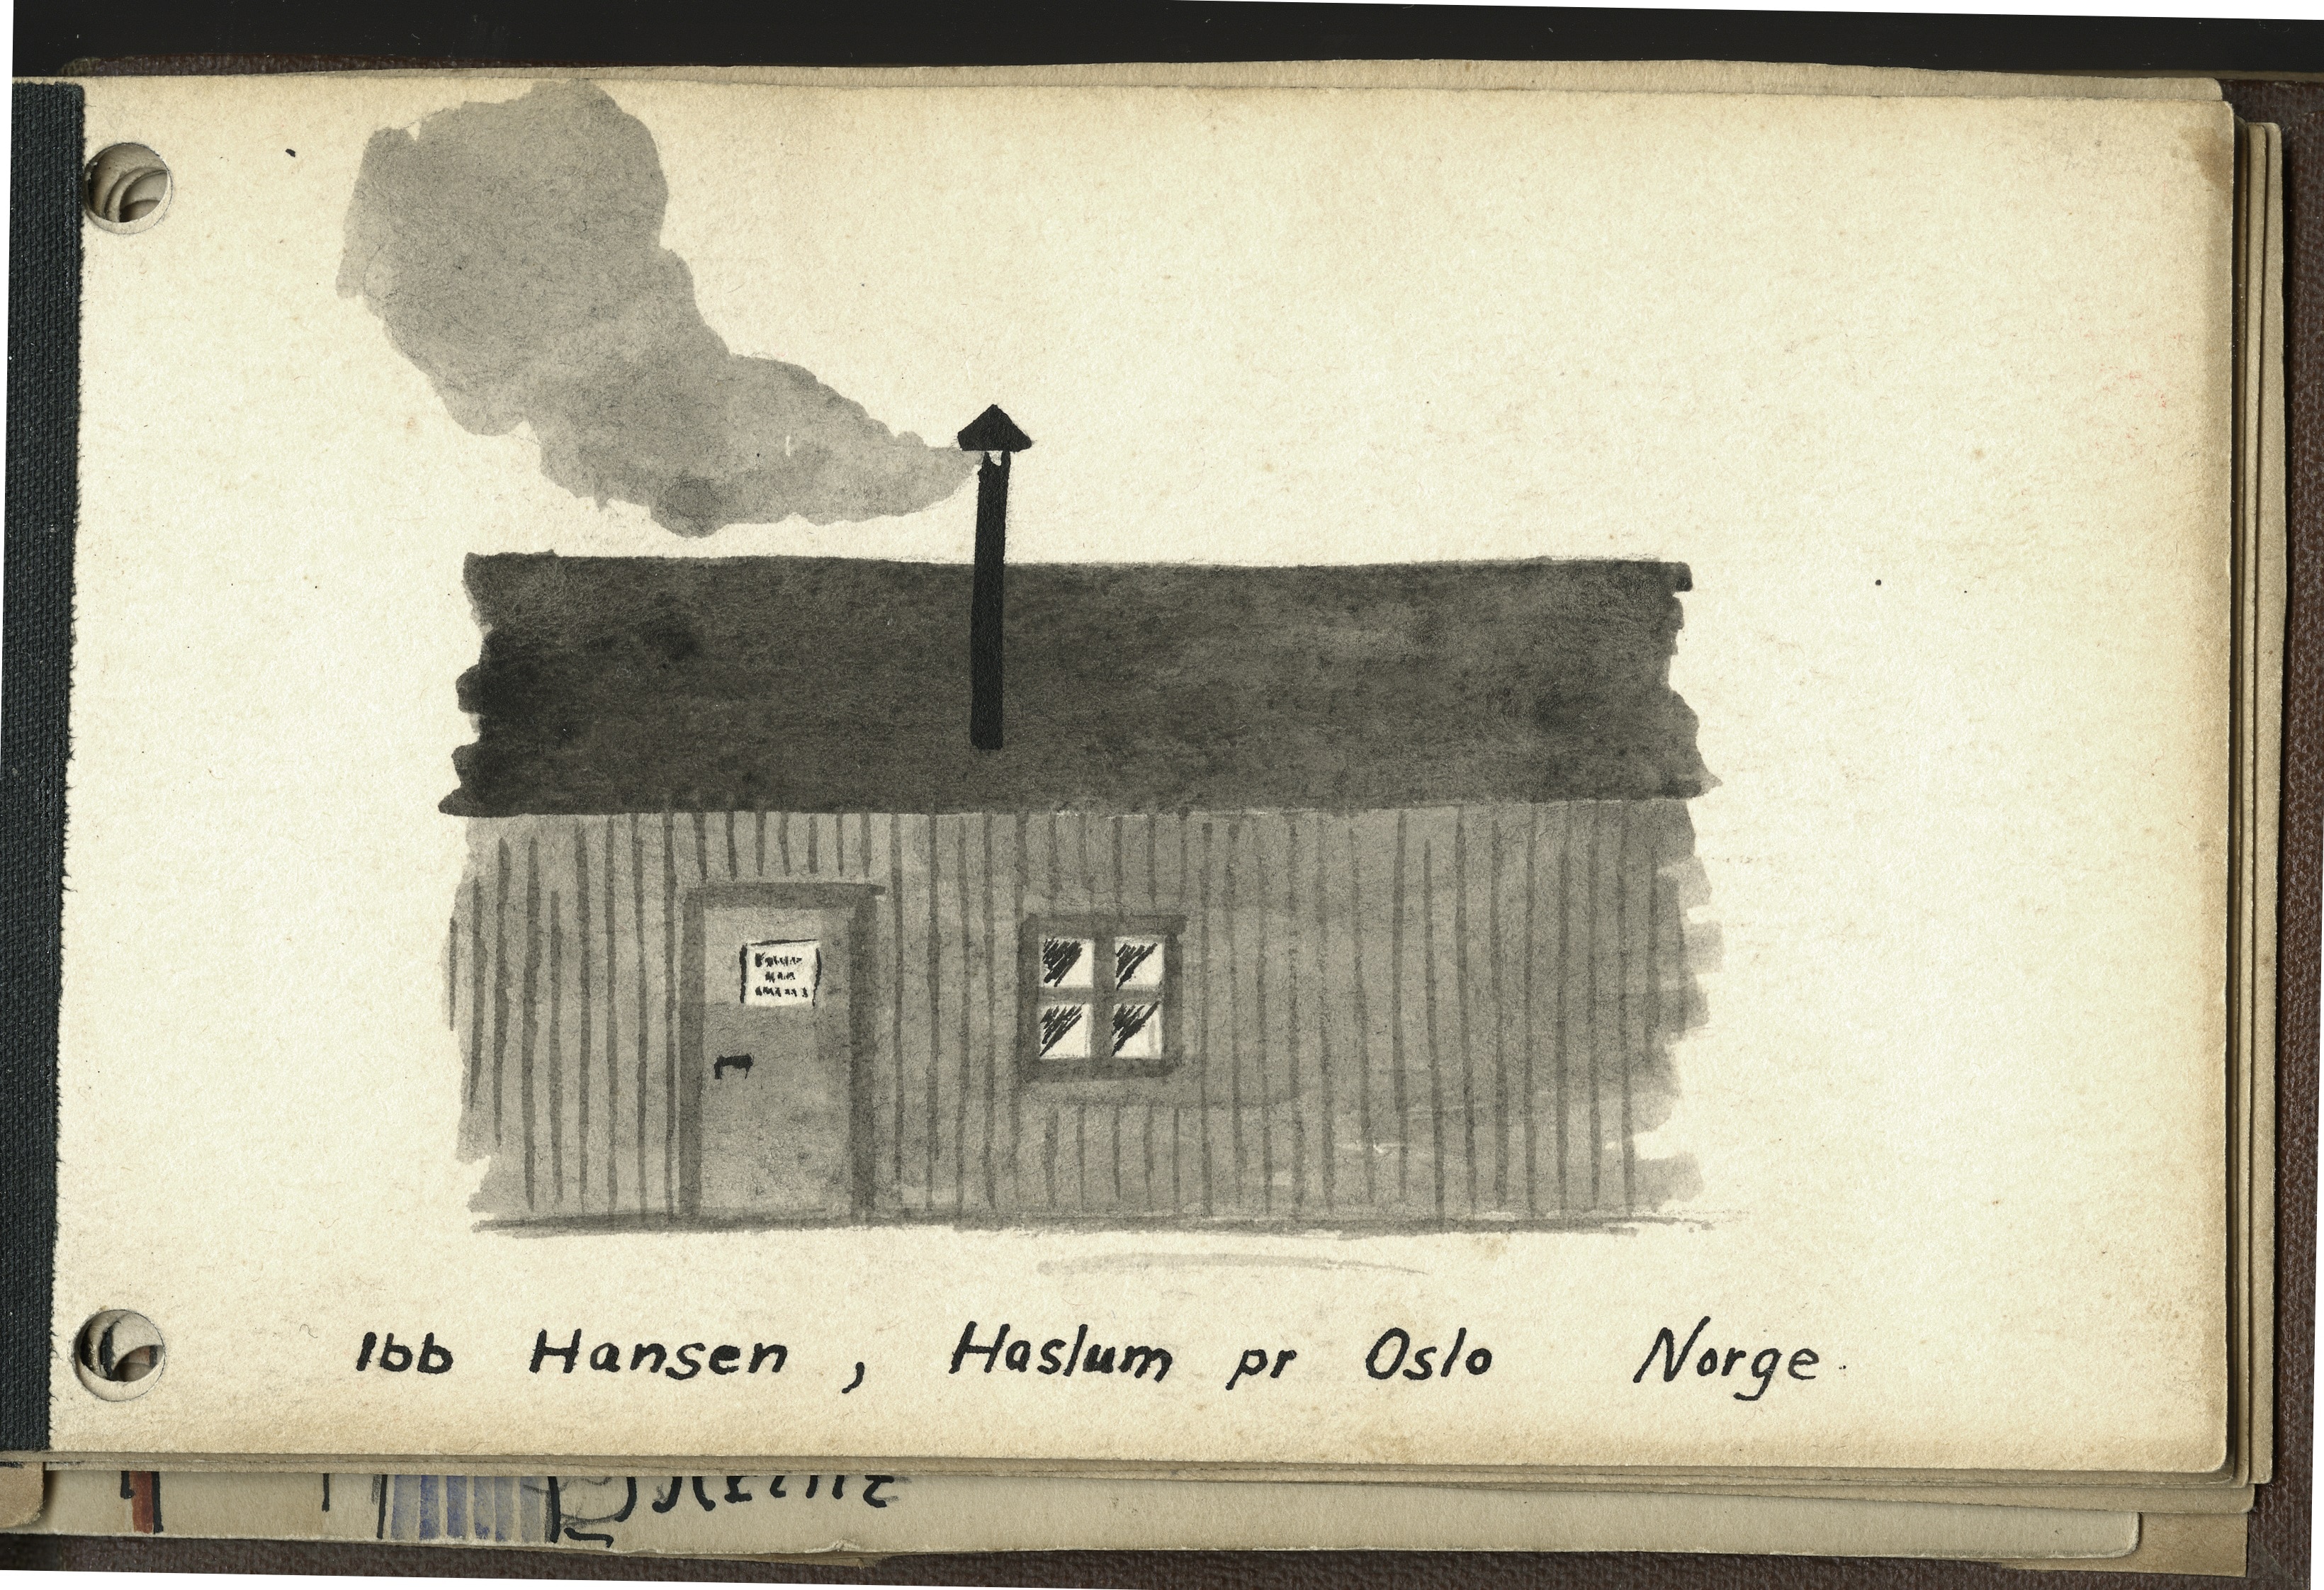 Ibb Hansen, Haslum pr Oslo Norge.